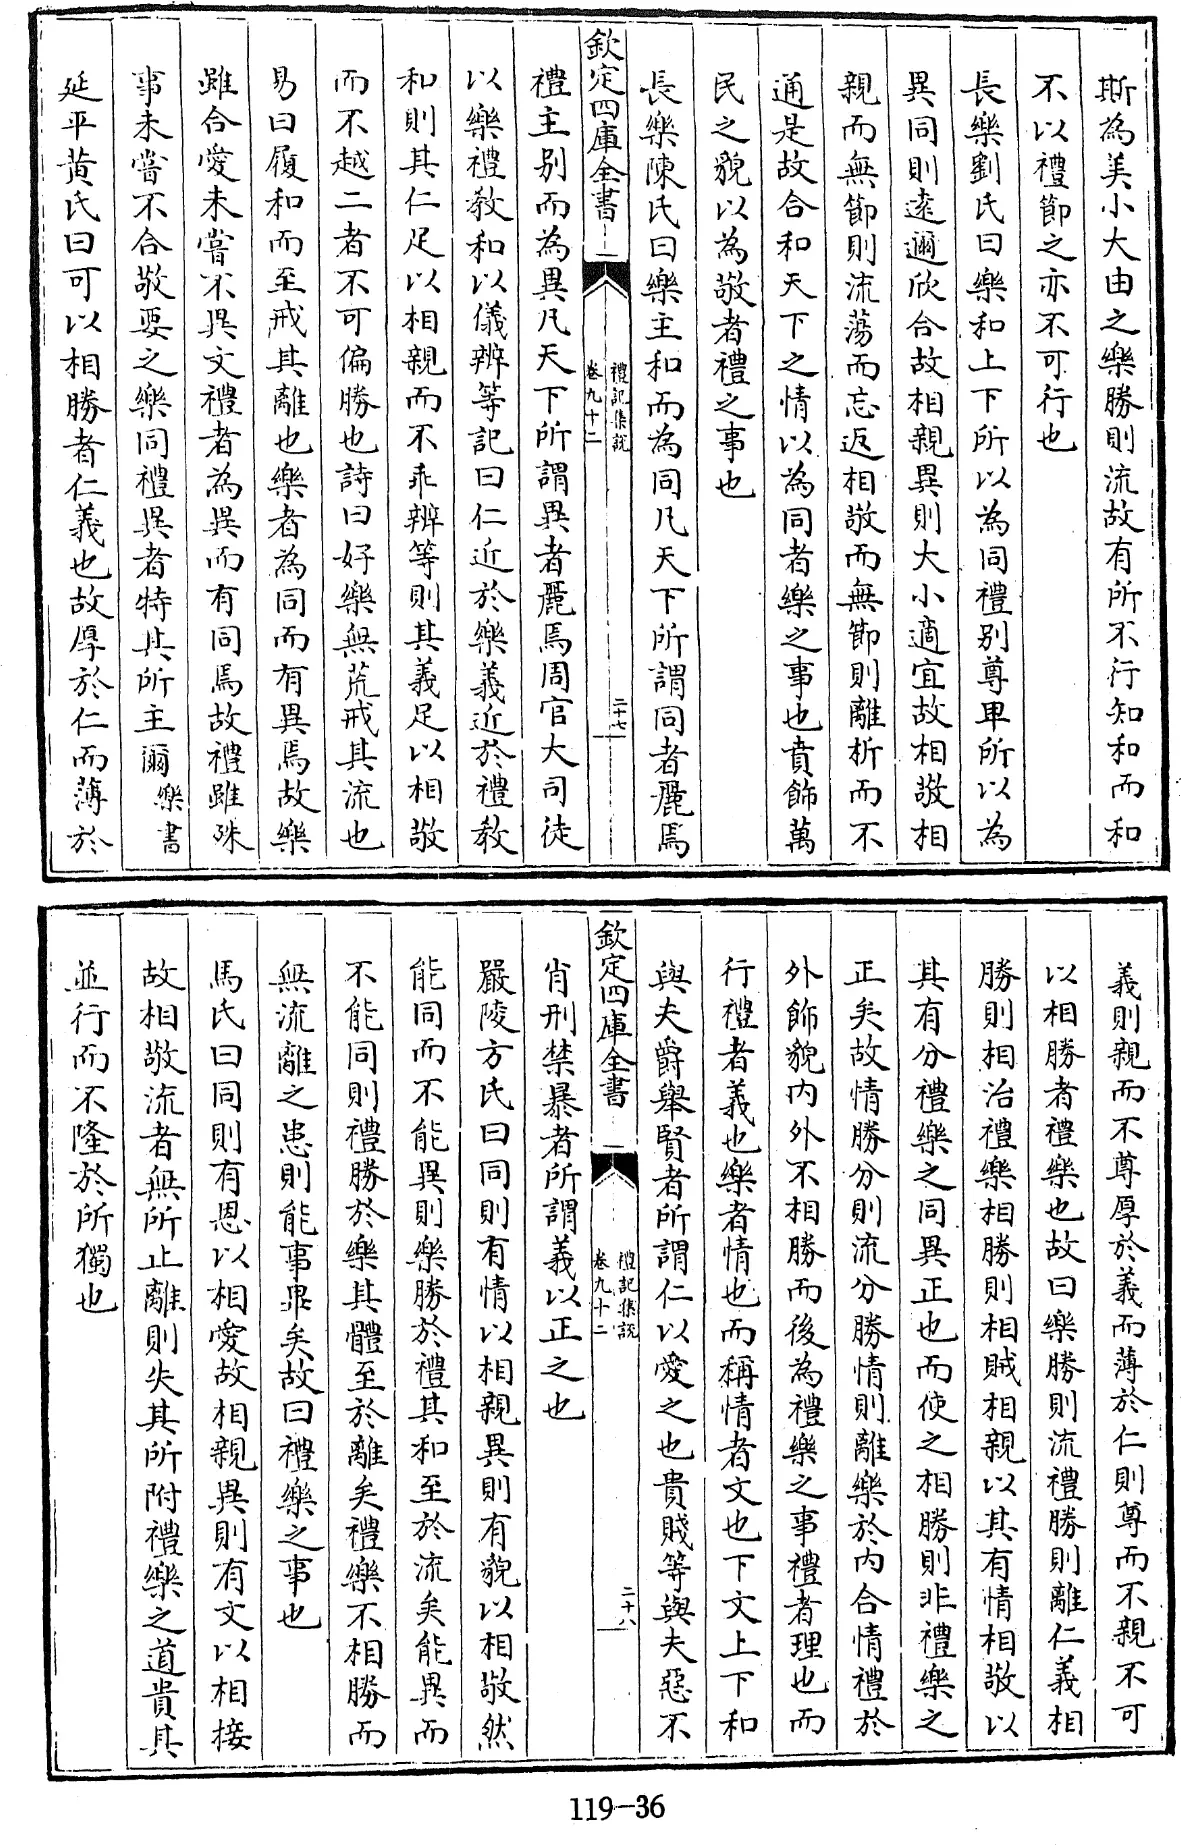 斯為美小大由之樂勝則流故有所不行知和而和
不以禮節之亦不可行也
長樂劉氏曰樂和上下所以為同禮別尊卑所以為
異同則遠邇欣合故相親異則大小適宜故相敬相
親而無節則流蕩而忘返相敬而無節則離析而不
通是故合和天下之情以為同者樂之事也賁飾萬
民之貌以為敬者禮之事也
長樂陳氏曰樂主和而為同凡天下所謂同者麗焉
欽定四庫全書
禮記集說
卷九十二
二十七
禮主別而為異凡天下所謂異者麗焉周官大司徒
以樂禮教和以儀辨等記曰仁近於樂義近於禮教
和則其仁足以相親而不乖辨等則其義足以相敬
而不越二者不可偏勝也詩曰好樂無荒戒其流也
易曰履和而至戒其離也樂者為同而有異焉故樂
雖合愛未嘗不異文禮者為異而有同焉故禮雖殊
事未嘗不合敬要之樂同禮異者特其所主爾樂書
延平黃氏曰可以相勝者仁義也故厚於仁而薄於
義則親而不尊厚於義而薄於仁則尊而不親不可
以相勝者禮樂也故曰樂勝則流禮勝則離仁義相
勝則相治禮樂相勝則相賊相親以其有情相敬以
其有分禮樂之同異正也而使之相勝則非禮樂之
正矣故情勝分則流分勝情則離樂於內合情禮於
外飾貌內外不相勝而後為禮樂之事禮者理也而
行禮者義也樂者情也而稱情者文也下文上下和
與夫爵舉賢者所謂仁以愛之也貴賤等與夫惡不
欽定四庫全書
禮記集說
卷九十二
二十八
肖刑禁暴者所謂義以正之也
嚴陵方氏曰同則有情以相親異則有貌以相敬然
能同而不能異則樂勝於禮其和至於流矣能異而
不能同則禮勝於樂其體至於離矣禮樂不相勝而
無流離之患則能事畢矣故曰禮樂之事也
馬氏曰同則有恩以相愛故相親異則有文以相接
故相敬流者無所止離則失其所附禮樂之道貴其
並行而不隆於所獨也
119-36